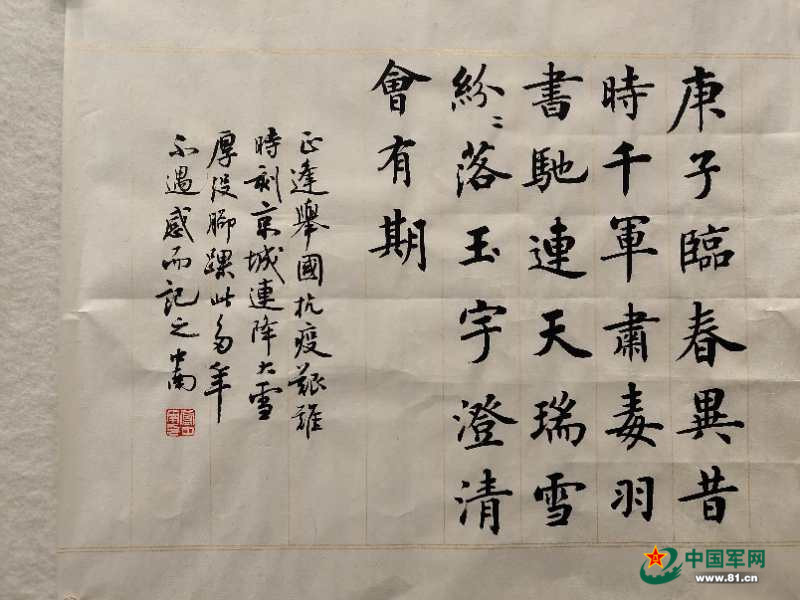 庚子臨春異昔
時千軍肅毒羽
書馳連天瑞雪
紛〻落玉宇澄清
會有期
正逢舉國抗疫艱難
時刻京城連降大雪
厚没腳踝此多年
不遇感而記之
中国军网
www.81.cn